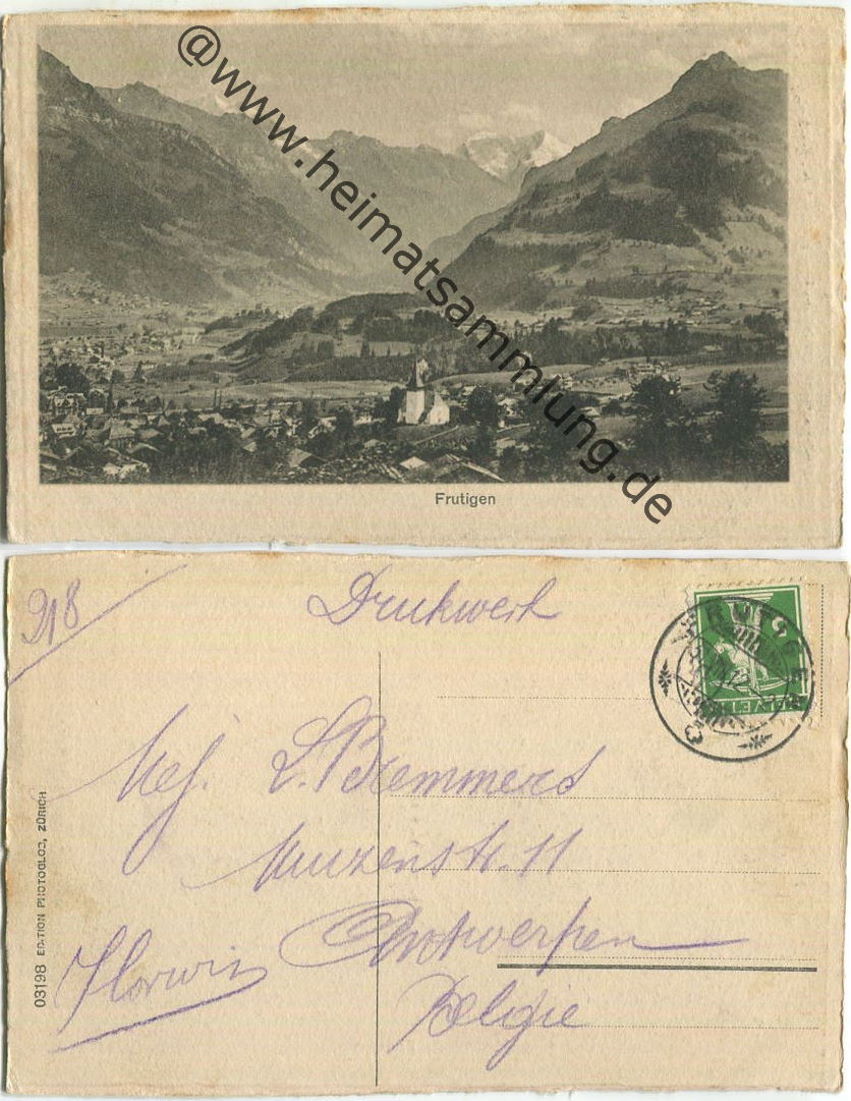 @www.heimatsammlung.de
Frutigen
918
Druckwerk
Mej. L. Bremmers
Muizenstr. 11
Antwerpen
Belgie
Florwin
03198 EDITION PHOTOGLOB, ZÜRICH
HELVETIA
FRUTIGEN